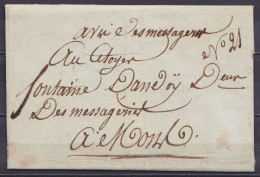 avis des messagerie
N° 21
Au Citoyen
fontaine Dandoÿ Deur
Des messageries
A Mons.